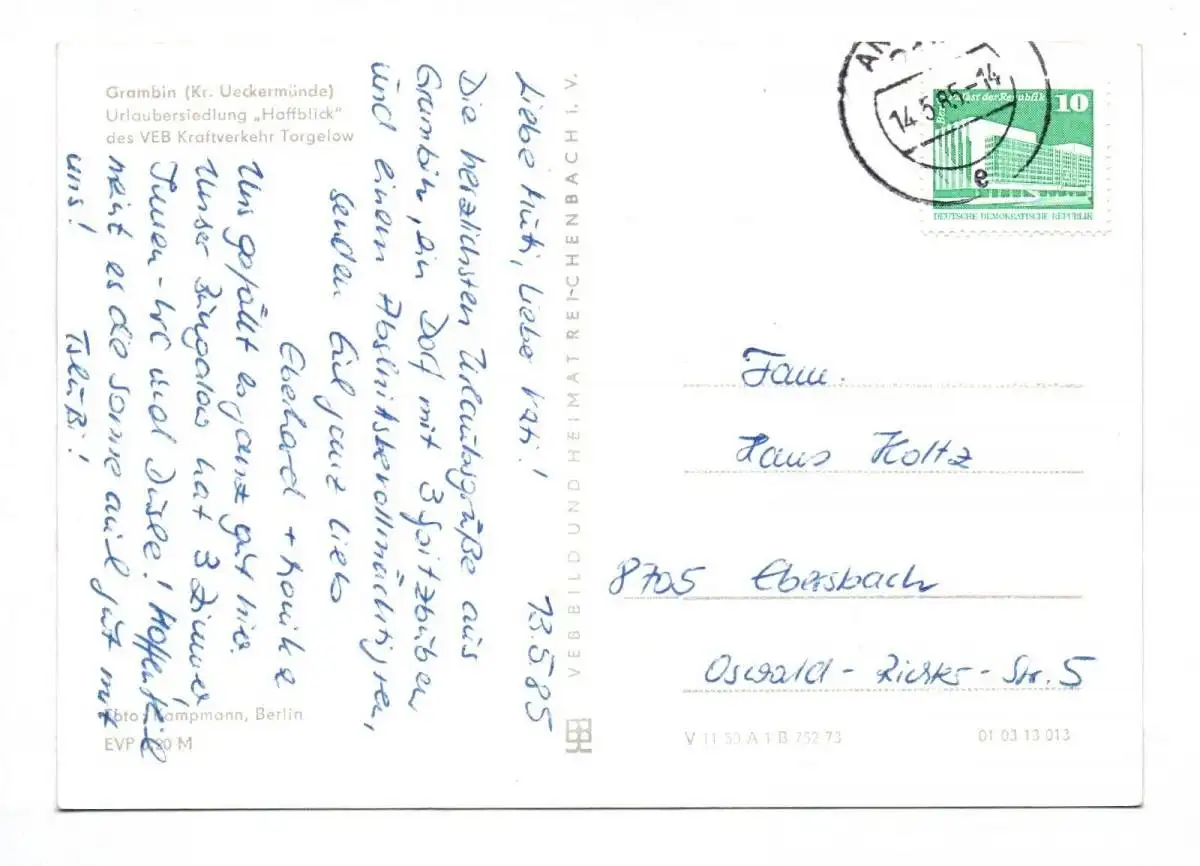 Grambin (Kr. Ueckermünde)
Urlaubersiedlung „Haffblick"
des VEB Kraftverkehr Torgelow
Liebe Muti, liebe Vati! 13.5.85
Die herzlichsten Urlaubsgrüße aus
Grambin, ein Dorf mit 3 Spitzbuben
und einen Abschnittsbevollmächtigten,
senden Euch ganz lieb
Eberhard + Monika
Uns gefällt es ganz gut hier.
Unser Bungalow hat 3 Zimmer,
Innen-WC und Dusche! Hoffentlich
meint es die Sonne auch gut mit
uns! Tschüßi!
Foto: Kampmann, Berlin
EVP 0,20 M
VEB BILD UND HEIMAT REICHENBACH I. V.
14.5.85-14
e
Palast der Republik
10
DEUTSCHE DEMOKRATISCHE REPUBLIK
Fam.
Hans Holtz
8705 Ebersbach
Oswald-Richter-Str. 5
V 11 50 A 1 B 752 73
01 03 13 013